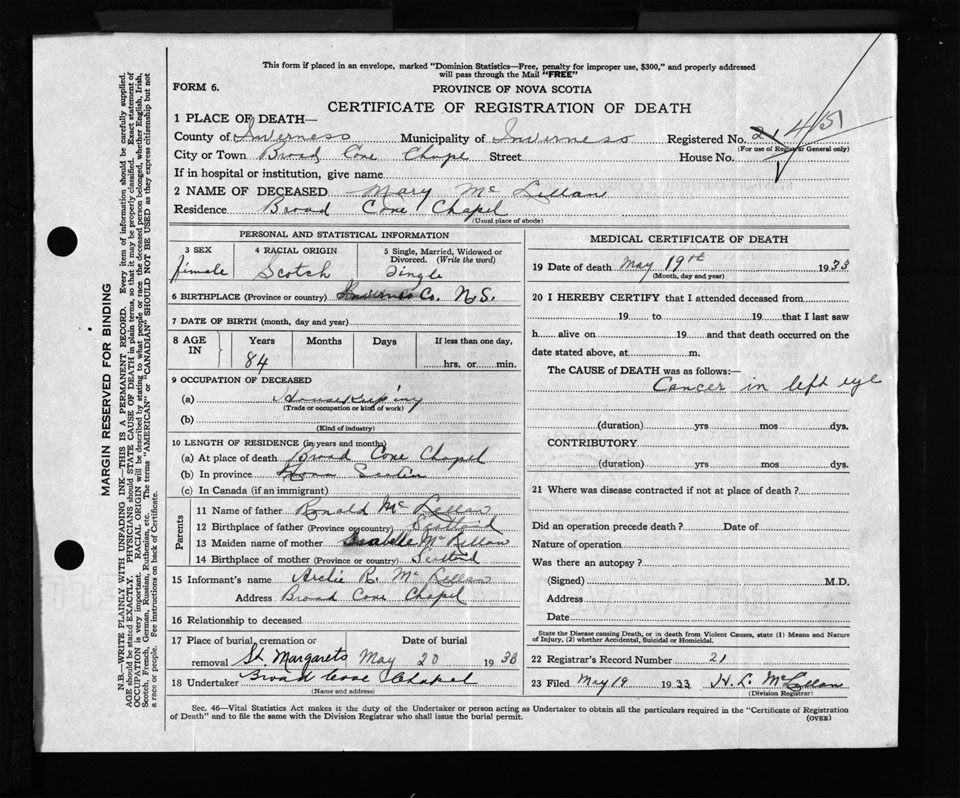 This form if placed in an envelope, marked "Dominion Statistics—Free, penalty for improper use, $300," and properly addressed
will pass through the Mail "FREE"
FORM 6.
PROVINCE OF NOVA SCOTIA
CERTIFICATE OF REGISTRATION OF DEATH
1 PLACE OF DEATH—
County of Inverness Municipality of Inverness Registered No. 21 451
(For use of Registrar General only)
City or Town Broad Cove Chapel Street House No.
If in hospital or institution, give name
2 NAME OF DECEASED Mary Mc Lellan
Residence Broad Cove Chapel
(Usual place of abode)
PERSONAL AND STATISTICAL INFORMATION
3 SEX 4 RACIAL ORIGIN 5 Single, Married, Widowed or
Divorced. (Write the word)
female Scotch Single
6 BIRTHPLACE (Province or country) Inverness Co. N.S.
7 DATE OF BIRTH (month, day and year)
8 AGE
IN
Years Months Days If less than one day,
84 hrs. or min.
9 OCCUPATION OF DECEASED
(a) Housekeeping
(Trade or occupation or kind of work)
(b)
(Kind of industry)
10 LENGTH OF RESIDENCE (in years and months)
(a) At place of death Broad Cove Chapel
(b) In province Nova Scotia
(c) In Canada (if an immigrant)
Parents
11 Name of father Ronald Mc Lellan
12 Birthplace of father (Province or country) Scotland
13 Maiden name of mother Mc Lellan
14 Birthplace of mother (Province or country) Scotland
15 Informant's name Archie R. Mc Lellan
Address Broad Cove Chapel
16 Relationship to deceased
17 Place of burial, cremation or Date of burial
removal St. Margarets May 20 1933
18 Undertaker Broad Cove Chapel
(Name and address)
MEDICAL CERTIFICATE OF DEATH
19 Date of death May 19th 1933
(Month, day and year)
20 I HEREBY CERTIFY that I attended deceased from
19 to 19 that I last saw
h alive on 19 and that death occurred on the
date stated above, at m.
The CAUSE of DEATH was as follows:—
Cancer in left eye
(duration) yrs mos dys.
CONTRIBUTORY
(duration) yrs mos dys.
21 Where was disease contracted if not at place of death?
Did an operation precede death? Date of
Nature of operation
Was there an autopsy?
(Signed) M.D.
Address
Date
State the Disease causing Death, or in death from Violent Causes, state (1) Means and Nature
of Injury, (2) whether Accidental, Suicidal or Homicidal.
22 Registrar's Record Number 21
23 Filed May 19 1933 H. L. McLellan
(Division Registrar)
Sec. 46—Vital Statistics Act makes it the duty of the Undertaker or person acting as Undertaker to obtain all the particulars required in the "Certificate of Registration
of Death" and to file the same with the Division Registrar who shall issue the burial permit. (OVER)
MARGIN RESERVED FOR BINDING
N.B.—WRITE PLAINLY WITH UNFADING INK—THIS IS A PERMANENT RECORD. Every item of information should be carefully supplied.
AGE should be stated EXACTLY. PHYSICIANS should STATE CAUSE OF DEATH in plain terms, so that it may be properly classified. Exact statement of
OCCUPATION is very important. RACIAL ORIGIN will be described by stating to what people or race the deceased person belonged, whether English, Irish,
Scotch, French, German, Russian, Ruthenian, etc. The terms "AMERICAN" or "CANADIAN" SHOULD NOT BE USED as they express citizenship but not
a race or people. See instructions on back of Certificate.